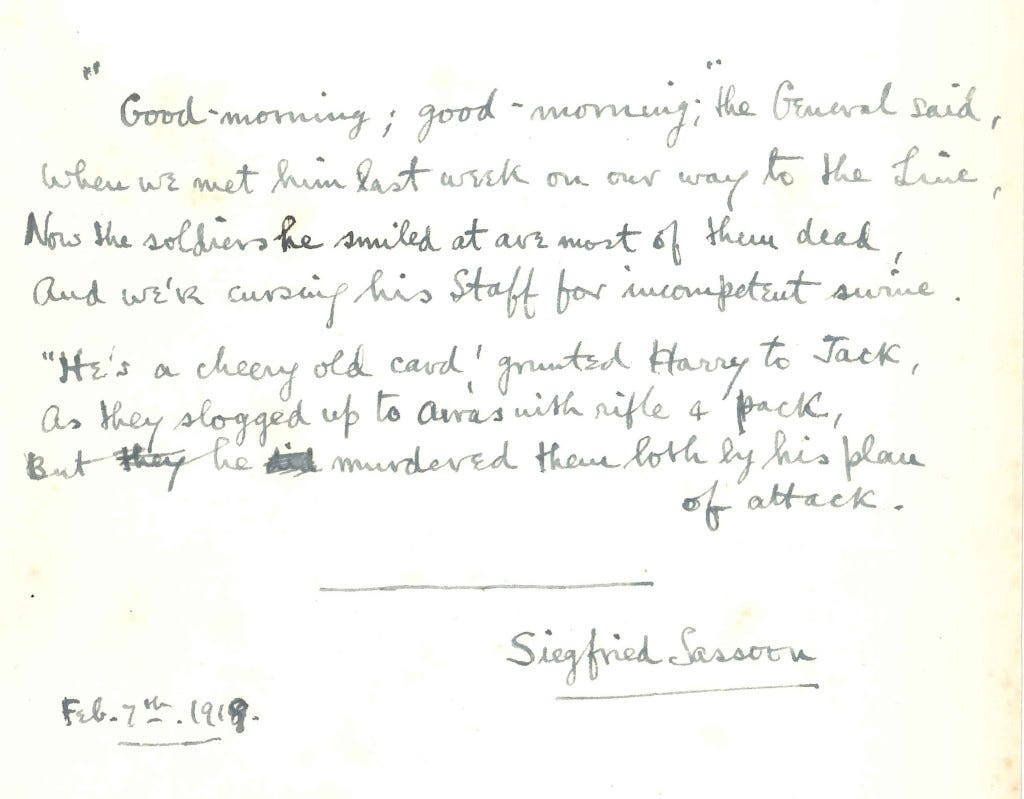 "Good-morning; good-morning;" the General said,
When we met him last week on our way to the Line,
Now the soldiers he smiled at are most of them dead,
And we're cursing his Staff for incompetent swine.
"He's a cheery old card', grunted Harry to Jack,
As they slogged up to Arras with rifle & pack,
But they he did murdered them both by his plan
of attack.
Siegfried Sassoon
Feb. 7th. 1919.